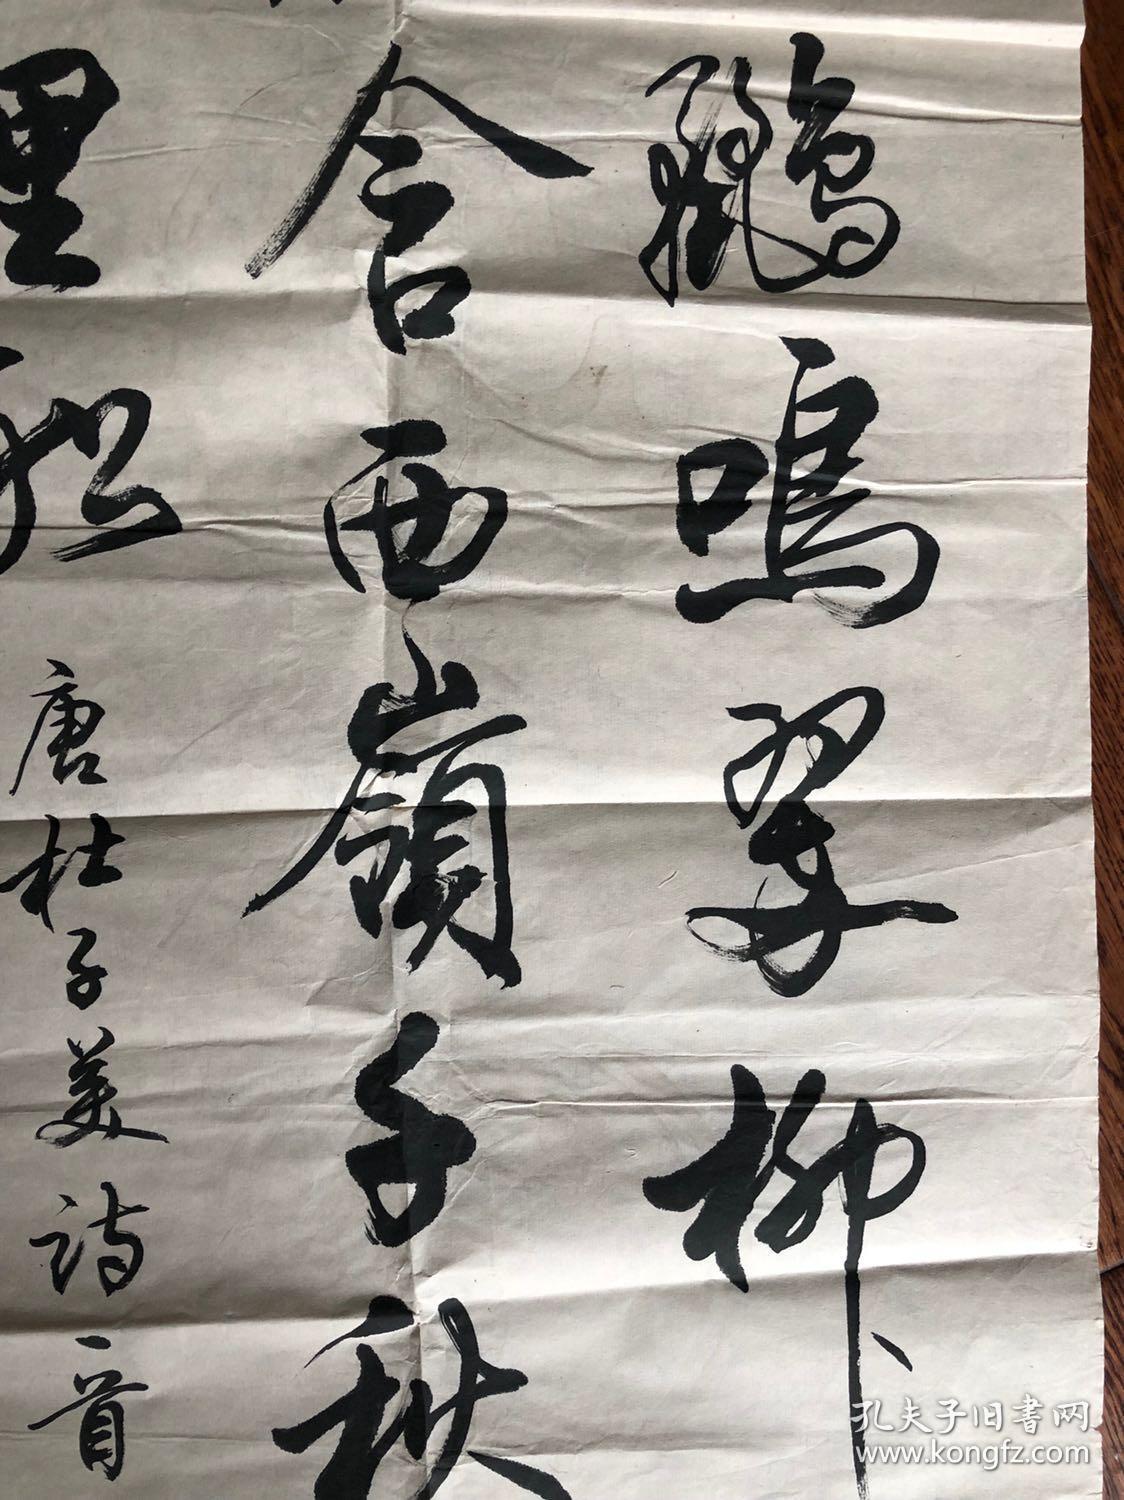 鸝鳴翠柳
含西嶺千秋
里船
唐杜子美詩一首
孔夫子旧書网
www.kongfz.com